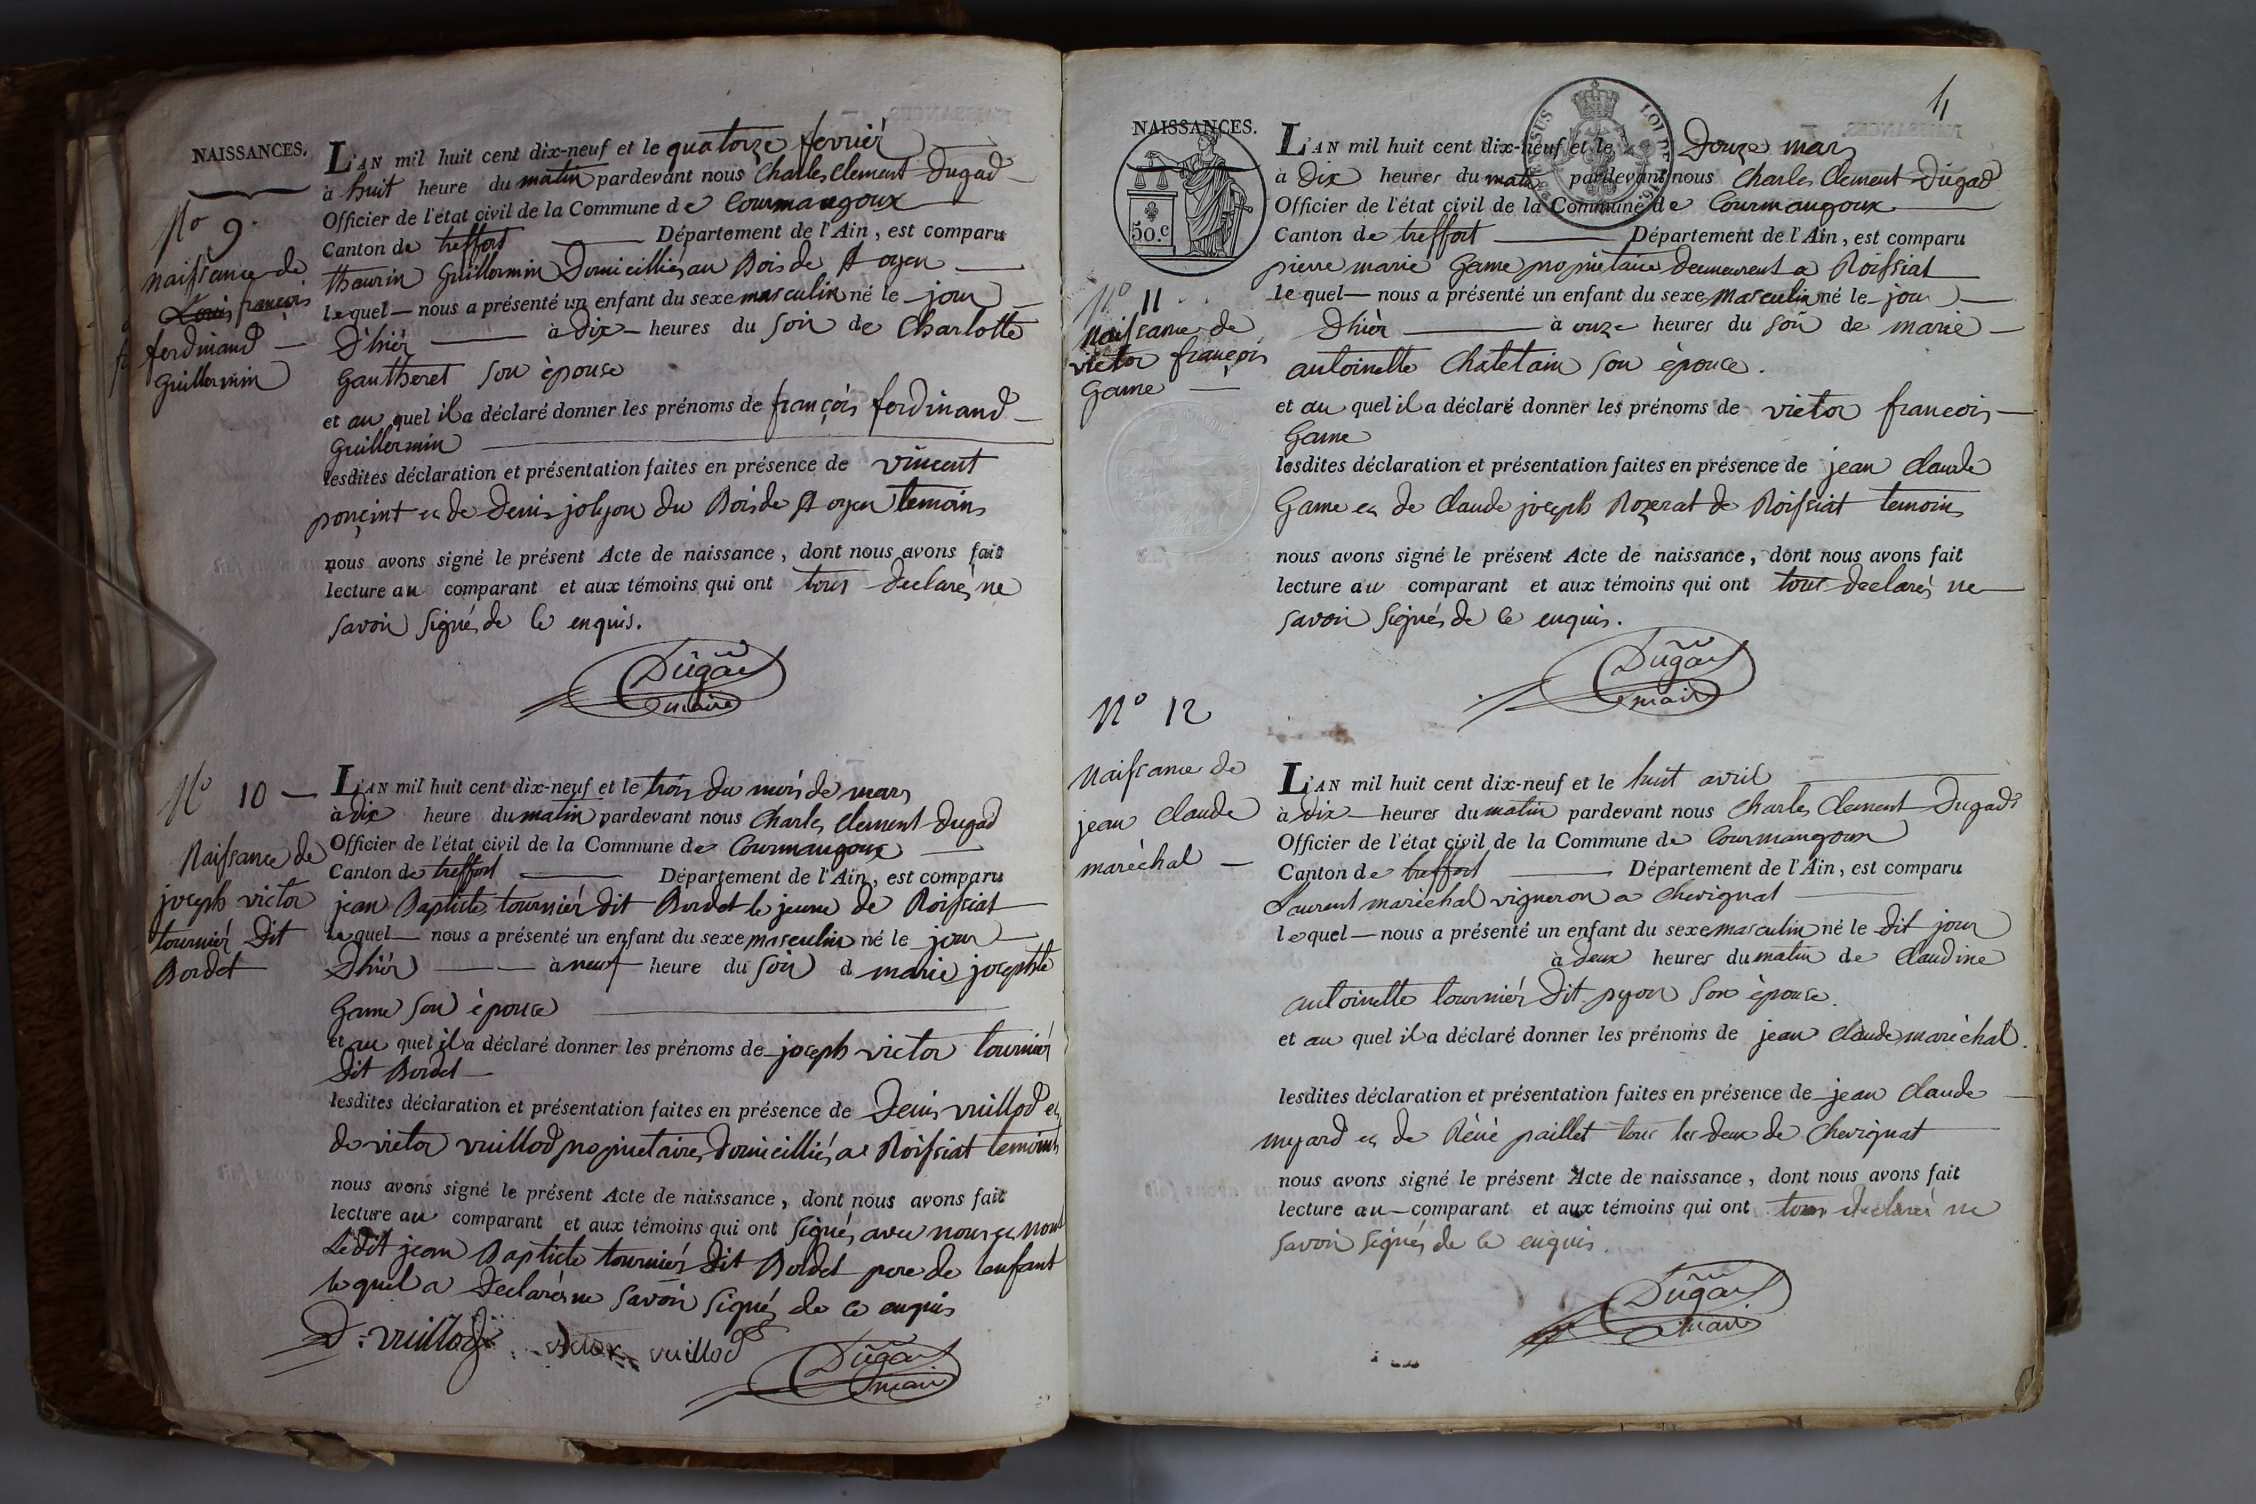 NAISSANCES.
L'AN mil huit cent dix-neuf et le quatorze fevrier
à huit heure du matin pardevant nous Charles Clement Dugad
Officier de l'état civil de la Commune de Courmangoux
Canton de treffort Département de l'Ain, est comparu
Guillermin Domicillié au Bois de
lequel nous a présenté un enfant du sexe masculin né le jour
D'hièr à Dix heures du soir de Charlotte
Gautheret son èpouse
et au quel il a déclaré donner les prénoms de françois ferdinand
Guillermin
lesdites déclaration et présentation faites en présence de vincent
ponçint et de Denis jolyon du Bois de temoins
nous avons signé le présent Acte de naissance, dont nous avons fait
lecture au comparant et aux témoins qui ont tous declarés ne
savoir signés de ce enquis.
Dugad
maire
No 9.
naissance de
Louis françois
ferdinand
Guillermin
No 10
Naissance de
joseph victor
tournièr dit
Bordet
L'AN mil huit cent dix-neuf et le trois du mois de mars
à dix heure du matin pardevant nous Charles Clement Dugad
Officier de l'état civil de la Commune de Courmangoux
Canton de treffort Département de l'Ain, est comparu
jean Baptiste tournièr dit Bordet le jeune de Roissiat
lequel nous a présenté un enfant du sexe masculin né le jour
Dhièr à neuf heure du soir d marie josephte
Game son èpouse
et au quel il a déclaré donner les prénoms de joseph victor tournièr
dit Bordet
lesdites déclaration et présentation faites en présence de Denis vuillod et
de victor vuillod propietaires domicilliés a Roissiat temoins
nous avons signé le présent Acte de naissance, dont nous avons fait
lecture au comparant et aux témoins qui ont signés avec nous et non
Ledit jean Baptiste tournièr dit Bordet pere de lenfant
lequel a Declarés ne savoir signés de ce enquis
D: vuillod victor vuillod
Dugad
maire
4
NAISSANCES.
50.c
L'AN mil huit cent dix-neuf et le Douze mars
à Dix heures du matin pardevant nous Charles Clement Dugad
Officier de l'état civil de la Commune de Courmangoux
Canton de treffort Département de l'Ain, est comparu
pierre marie Game propietaire demeurent a Roissiat
lequel nous a présenté un enfant du sexe masculin né le jour
Dhièr à onze heures du soir de marie
antoinette Chatelain son èpouse.
et au quel il a déclaré donner les prénoms de victor françois
Game
lesdites déclaration et présentation faites en présence de jean claude
Game et de Claude joseph Rozerat de Roissiat temoins
nous avons signé le présent Acte de naissance, dont nous avons fait
lecture au comparant et aux témoins qui ont tous declarés ne
savoir signés de ce enquis.
Dugad
maire
No 11
Naissance de
victor françois
Game
No 12
Naissance de
jean claude
marèchal
L'AN mil huit cent dix-neuf et le huit avril
à dix heures du matin pardevant nous Charles Clement Dugad
Officier de l'état civil de la Commune de Courmangoux
Canton de treffort Département de l'Ain, est comparu
Laurent marèchal vigneron a Chevignat
lequel nous a présenté un enfant du sexe masculin né le dit jour
à deux heures du matin de Claudine
antoinette tournièr dit pyon son èpouse.
et au quel il a déclaré donner les prénoms de jean Claude marèchal.
lesdites déclaration et présentation faites en présence de jean Claude
et de Rènè paillet tous les deux de Chevignat
nous avons signé le présent Acte de naissance, dont nous avons fait
lecture au comparant et aux témoins qui ont tous declarés ne
savoir signés de ce enquis.
Dugad
maire